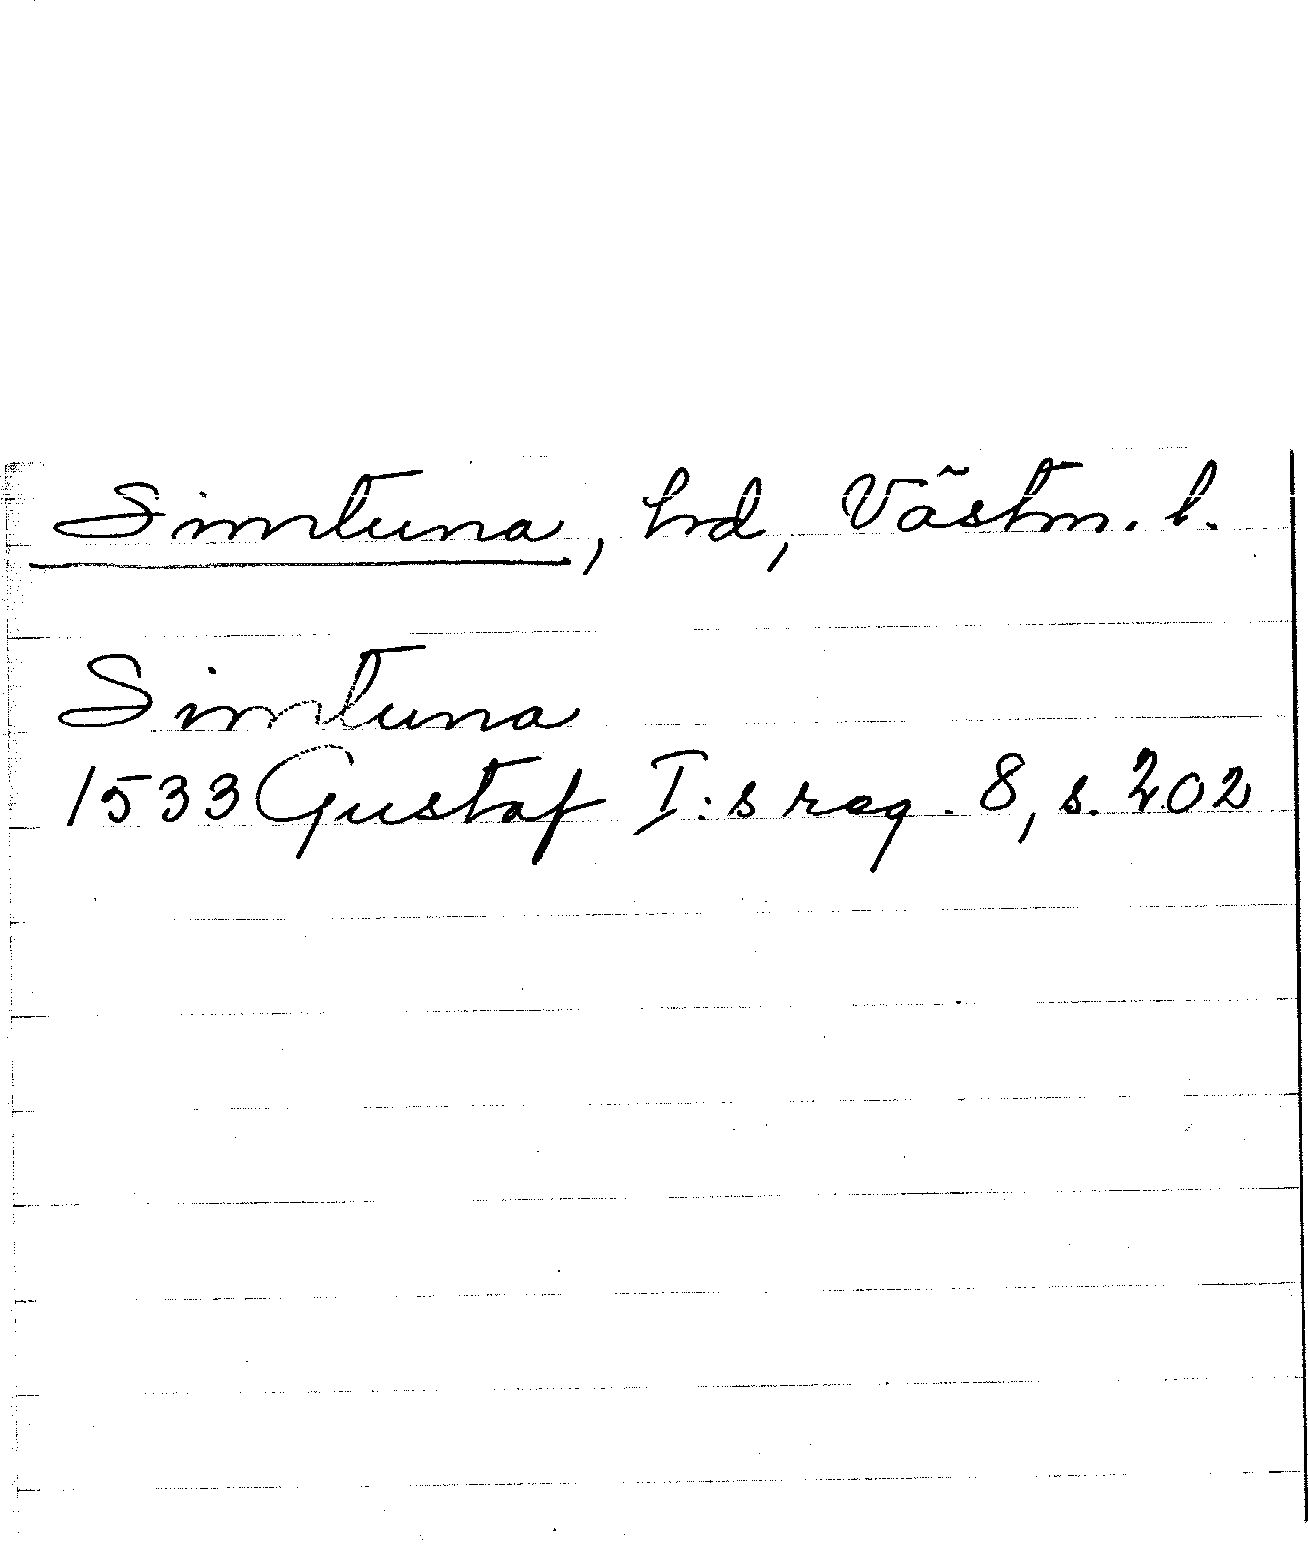 Simtuna, hd, Västm. l.
Simtuna
1533 Gustaf I:s reg. 8, s. 202